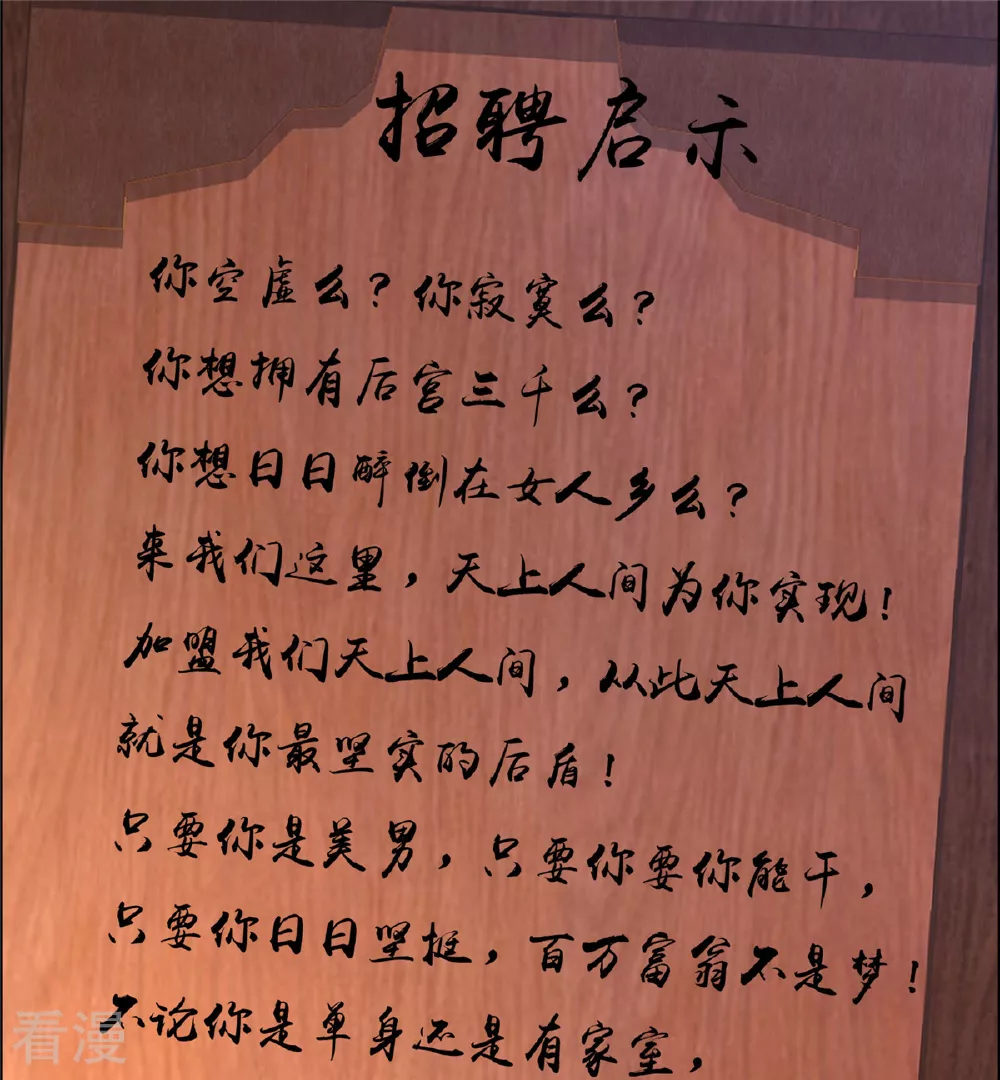 招聘启示
你空虚么？你寂寞么？
你想拥有后宫三千么？
你想日日醉倒在女人乡么？
来我们这里，天上人间为你实现！
加盟我们天上人间，从此天上人间
就是你最坚实的后盾！
只要你是美男，只要你要你能干，
只要你日日坚挺，百万富翁不是梦！
不论你是单身还是有家室，
看漫